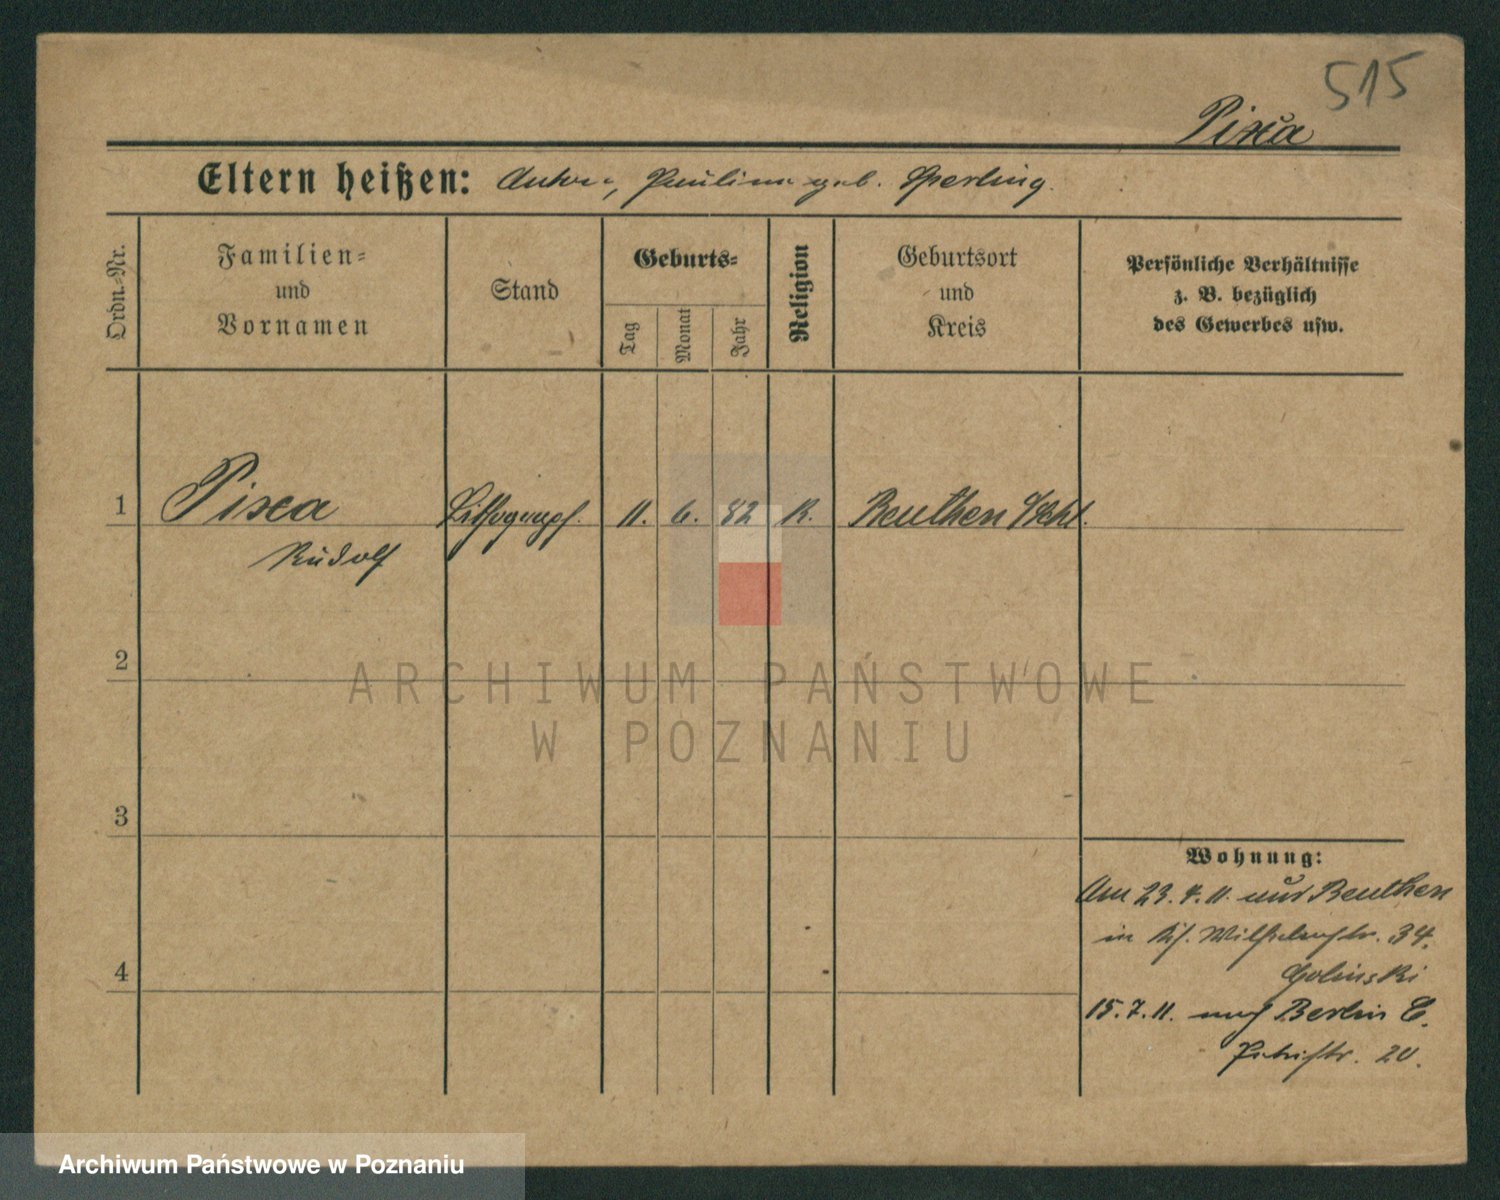 515
Pixa
Eltern heißen: Anton, Pauline geb. Sperling.
Ordn.-Nr.
Familien-
und
Vornamen
Stand
Geburts-
Tag
Monat
Jahr
Religion
Geburtsort
und
Kreis
Persönliche Verhältnisse
z. B. bezüglich
des Gewerbes usw.
1 Pixa Lithograph. 11. 6. 82 K. Beuthen
Rudolf
2
ARCHIWUM PAŃSTWOWE
W POZNANIU
3
4
Wohnung:
Am 23. 4. 11. aus Beuthen
in Wilhelmstr. 34.
Golinski
15. 7. 11. nach Berlin C.
Petristr. 20.
Archiwum Państwowe w Poznaniu